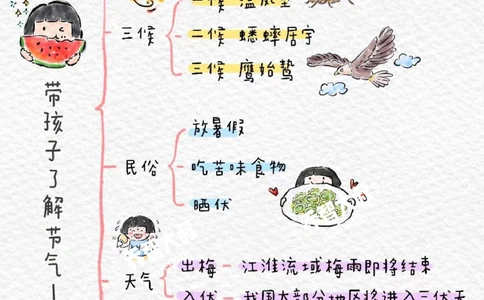 带孩子了解节气
三候
一候 温风至
二候 蟋蟀居宇
三候 鹰始鸷
民俗
放暑假
吃苦味食物
晒伏
天气
出梅 — 江淮流域梅雨即将结束
入伏 — 我国大部分地区将进入三伏天